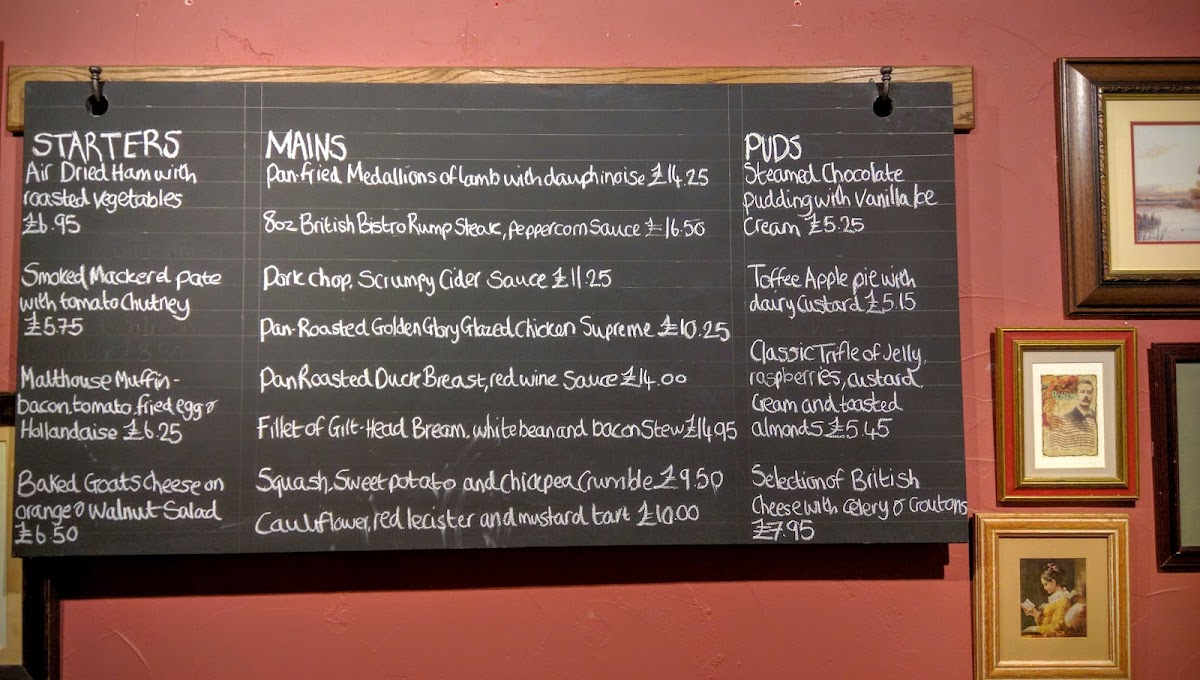 STARTERS
Air Dried Ham with
roasted vegetables
£6.95
Smoked Mackerel pate
with tomato Chutney
£5.75
Malthouse Muffin-
bacon, tomato, fried egg &
Hollandaise £6.25
Baked Goats Cheese on
orange & Walnut Salad
£6.50
MAINS
Pan-fried Medallions of lamb with dauphinoise £14.25
8oz British Bistro Rump Steak, Peppercorn Sauce £16.50
Pork chop, Scrumpy Cider Sauce £11.25
Pan-Roasted Golden Glory Glazed Chicken Supreme £10.25
Pan Roasted Duck Breast, red wine Sauce £14.00
Fillet of Gilt-Head Bream, white bean and bacon Stew £14.95
Squash, Sweet potato and chickpea Crumble £9.50
Cauliflower, red lecister and mustard tart £10.00
PUDS
Steamed Chocolate
pudding with Vanilla Ice
Cream £5.25
Toffee Apple pie with
dairy Custard £5.15
Classic Trifle of Jelly,
raspberries, custard,
Cream and toasted
almonds £5.45
Selection of British
Cheese with celery & Croutons
£7.95